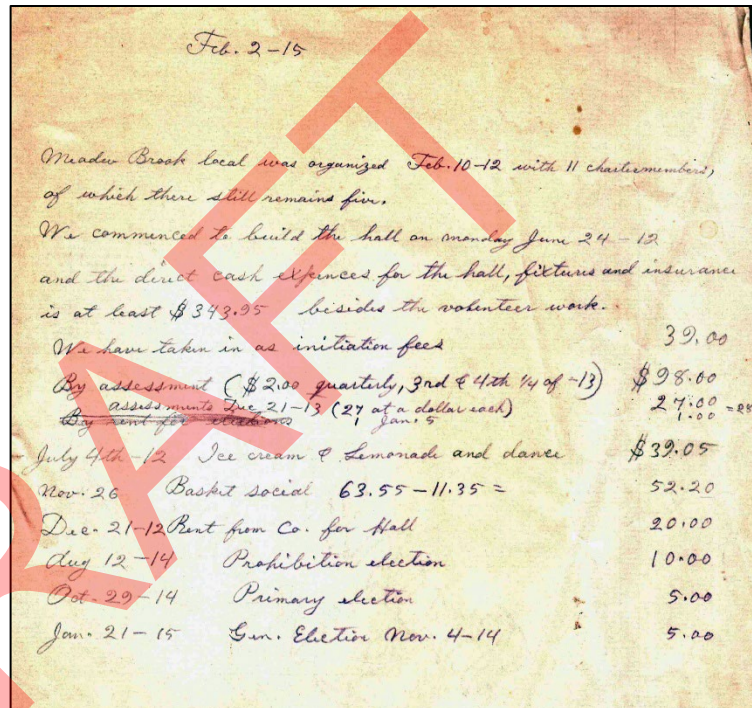 Feb. 2-15
Meadow Brook local was organized Feb. 10-12 with 11 chartermembers,
of which there still remains five.
We commenced to build the hall on monday June 24-12
and the direct cash expences for the hall, fixtures and insurance
is at least $343.95 besides the volenteer work.
We have taken in as initiation fees 39.00
By assessment ($2.00 quarterly, 3rd & 4th 1/4 of -13) $98.00
assessments Dec 21-13 (27 at a dollar each) 27.00
By rent for elections 1 Jan. 5 1.00 = 28
July 4th-12 Ice cream & Lemonade and dance $39.05
Nov. 26 Basket social 63.55-11.35= 52.20
Dec. 21-12 Rent from Co. for Hall 20.00
Aug 12-14 Prohibition election 10.00
Oct. 29-14 Primary election 5.00
Jan. 21-15 Gen. Election Nov. 4-14 5.00
RAFT